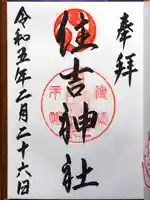 奉拝
住吉神社
令和五年二月二十六日